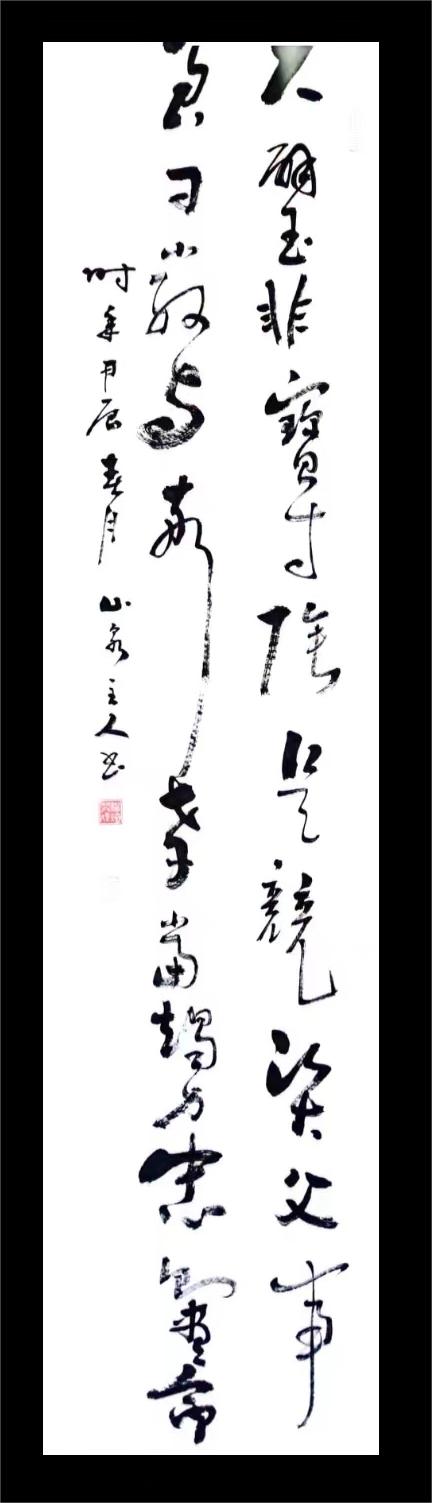 尺璧非寶寸陰是競資父事
君曰嚴與敬孝當竭力忠則盡命
时年甲辰春月 山泉主人书